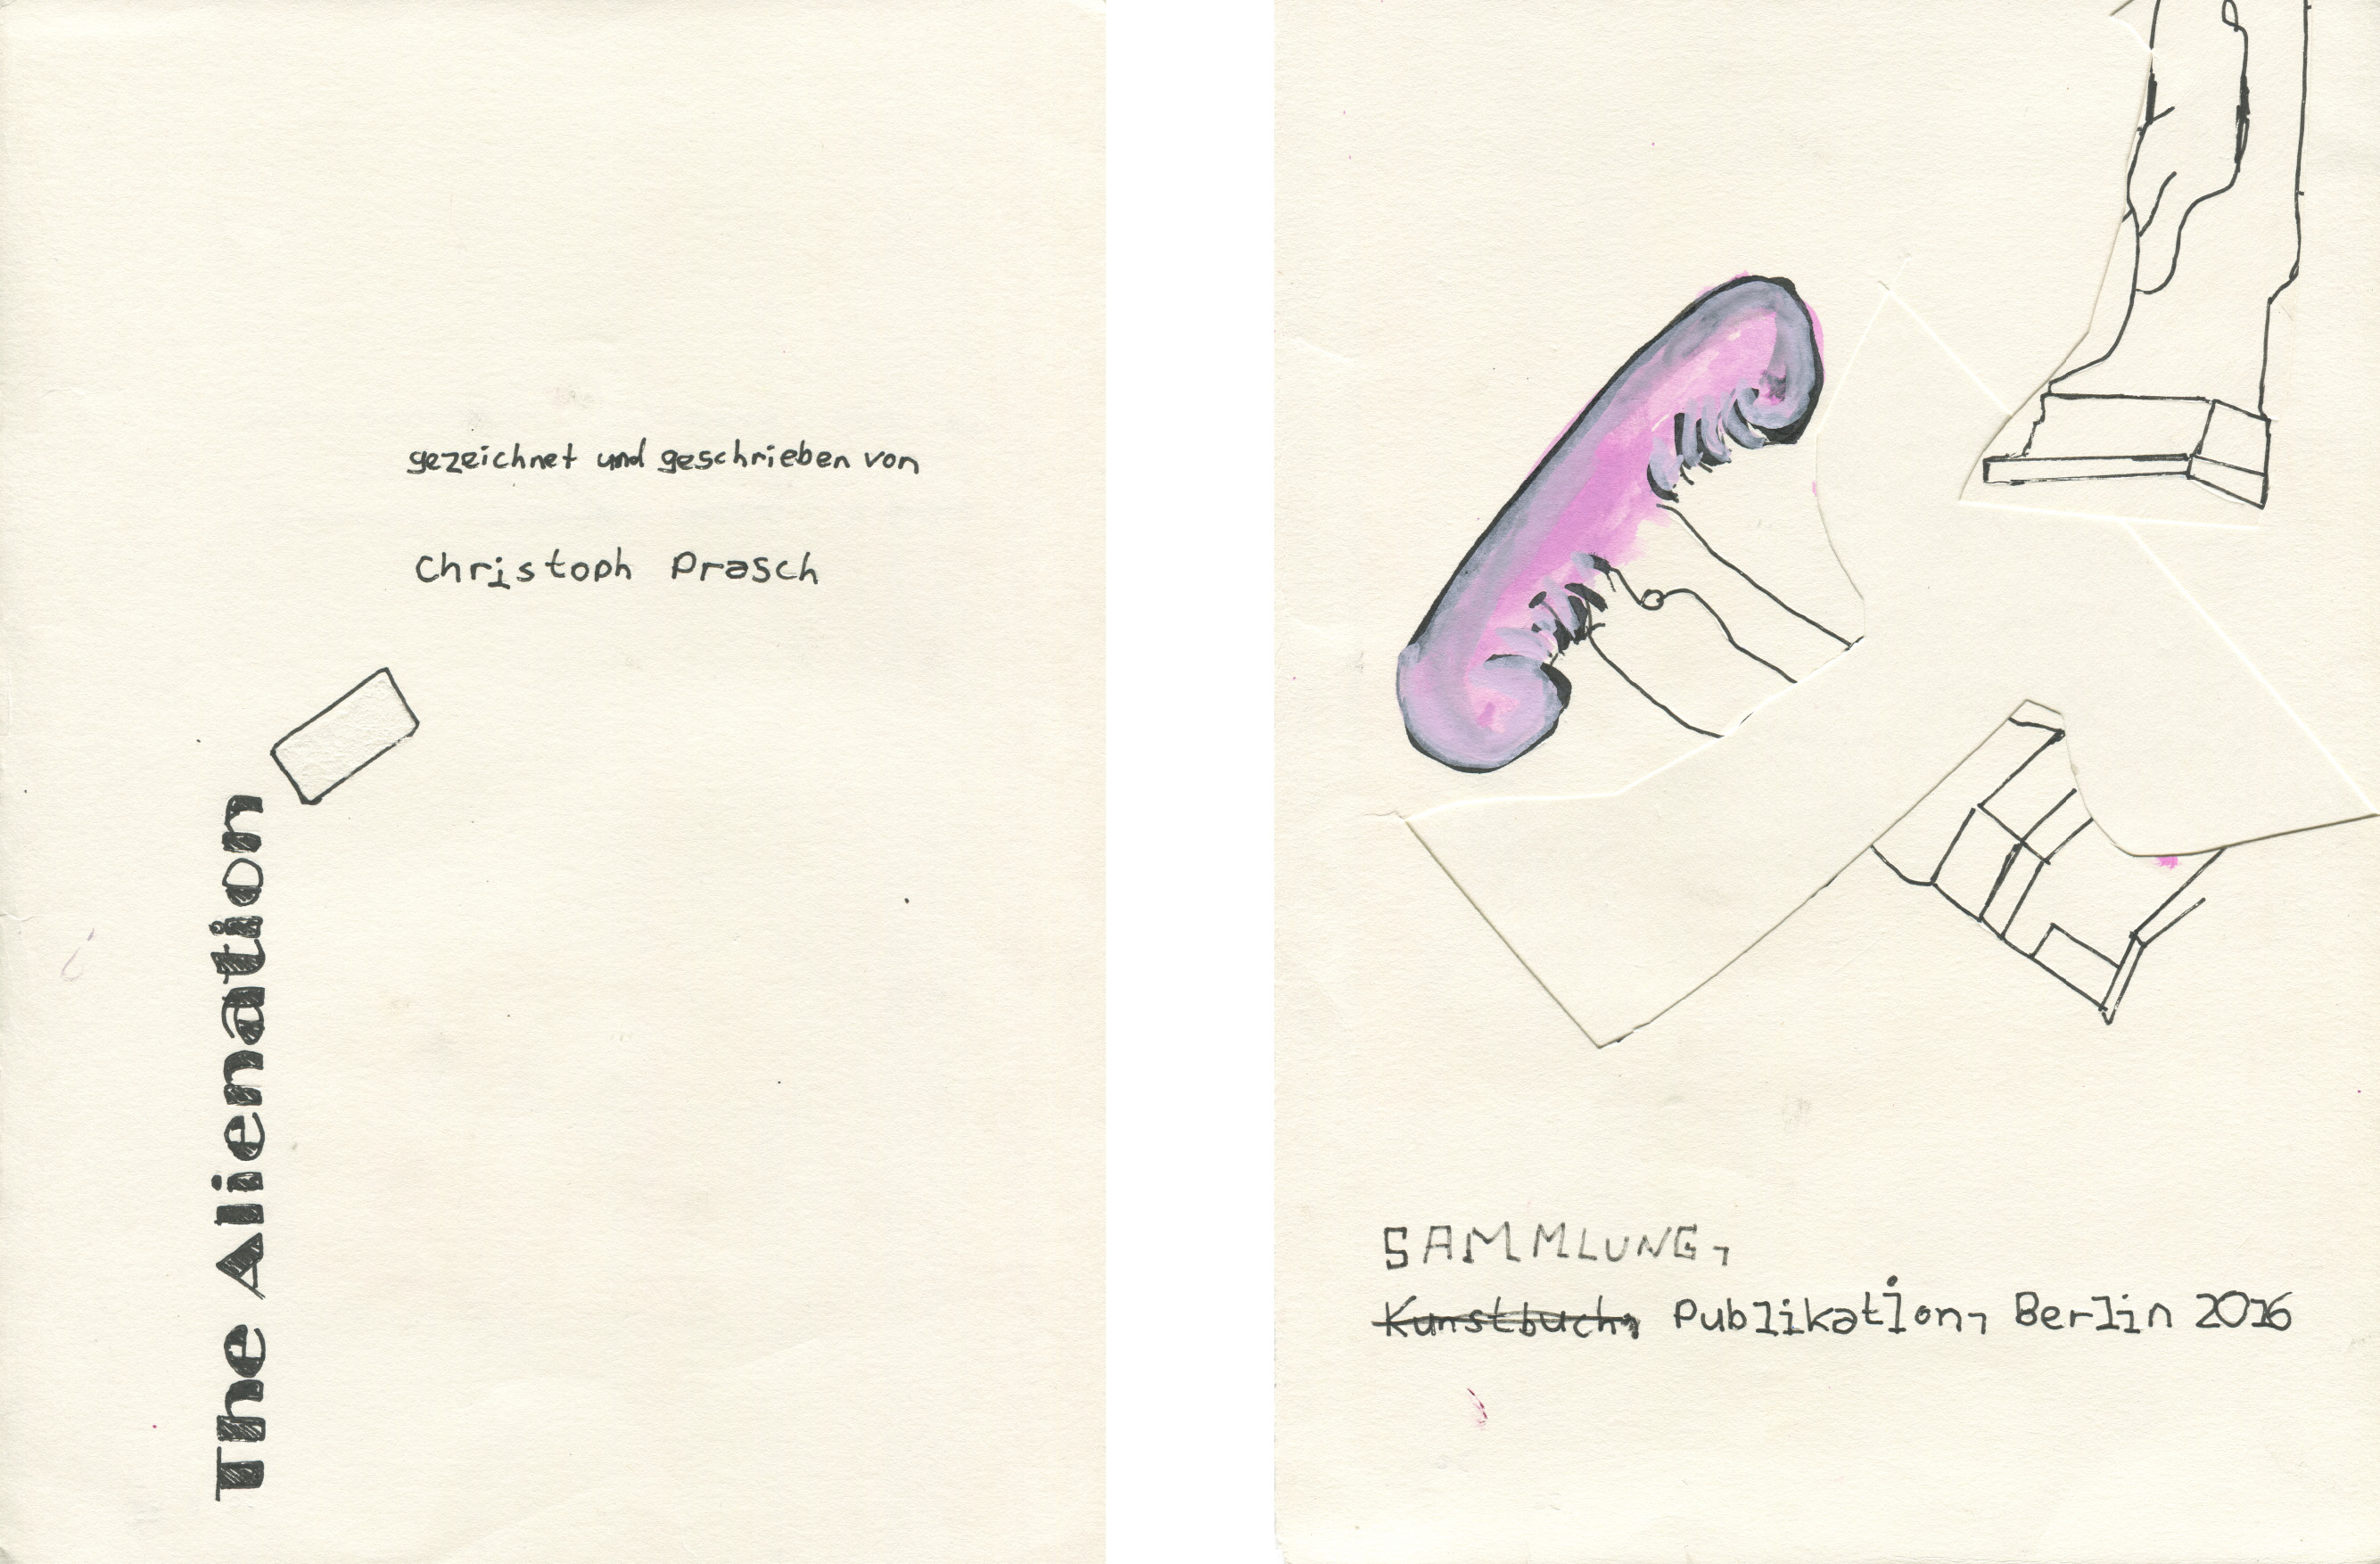 gezeichnet und geschrieben von
Christoph Prasch
The Alienation
SAMMLUNG,
Kunstbuch, Publikation, Berlin 2016